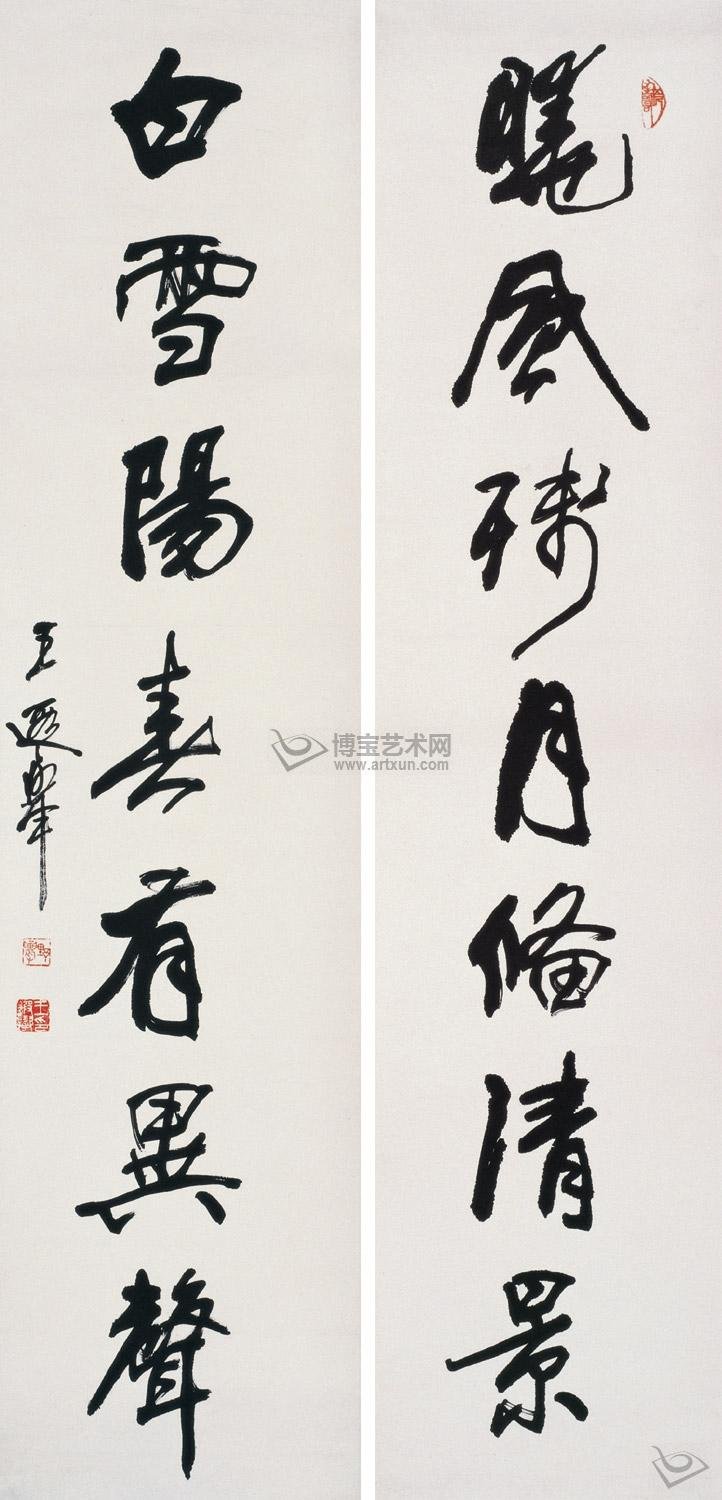 曉風殘月備清景
白雪陽春有異聲
王遐舉
博宝艺术网
www.artxun.com